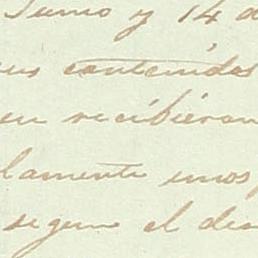 Junio y 14 d
us contenidos
en recibieron
lamente unos
segun el des